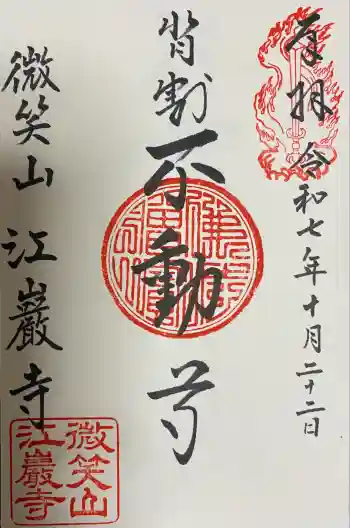 奉拝 令和七年十月二十二日
背割不動尊
微笑山 江巖寺
微笑山
江巖寺